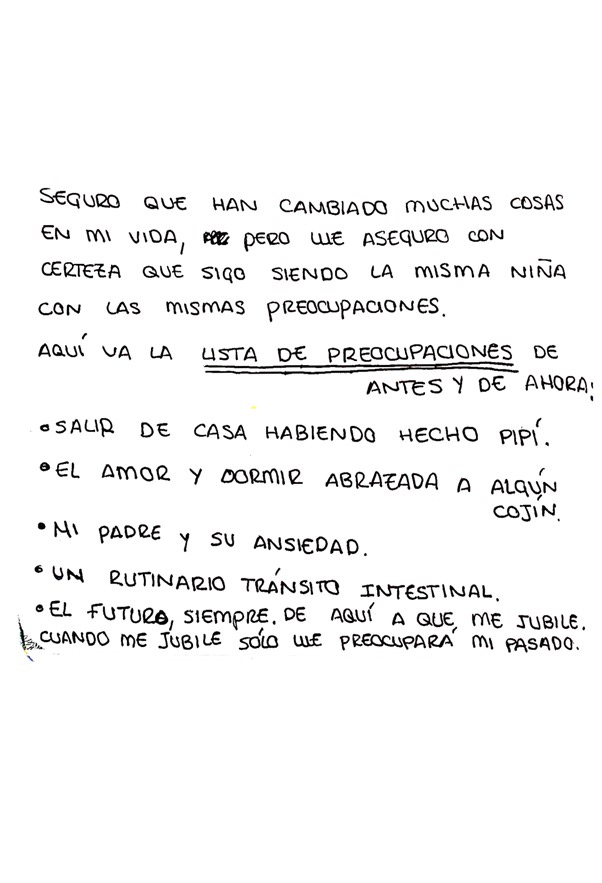 SEGURO QUE HAN CAMBIADO MUCHAS COSAS
EN MI VIDA, PERO ME ASEGURO CON
CERTEZA QUE SIGO SIENDO LA MISMA NIÑA
CON LAS MISMAS PREOCUPACIONES.
AQUÍ VA LA LISTA DE PREOCUPACIONES DE
ANTES Y DE AHORA:
• SALIR DE CASA HABIENDO HECHO PIPÍ.
• EL AMOR Y DORMIR ABRAZADA A ALGÚN
COJÍN.
• MI PADRE Y SU ANSIEDAD.
• UN RUTINARIO TRÁNSITO INTESTINAL.
• EL FUTURO, SIEMPRE. DE AQUÍ A QUE ME JUBILE.
CUANDO ME JUBILE SÓLO ME PREOCUPARÁ MI PASADO.